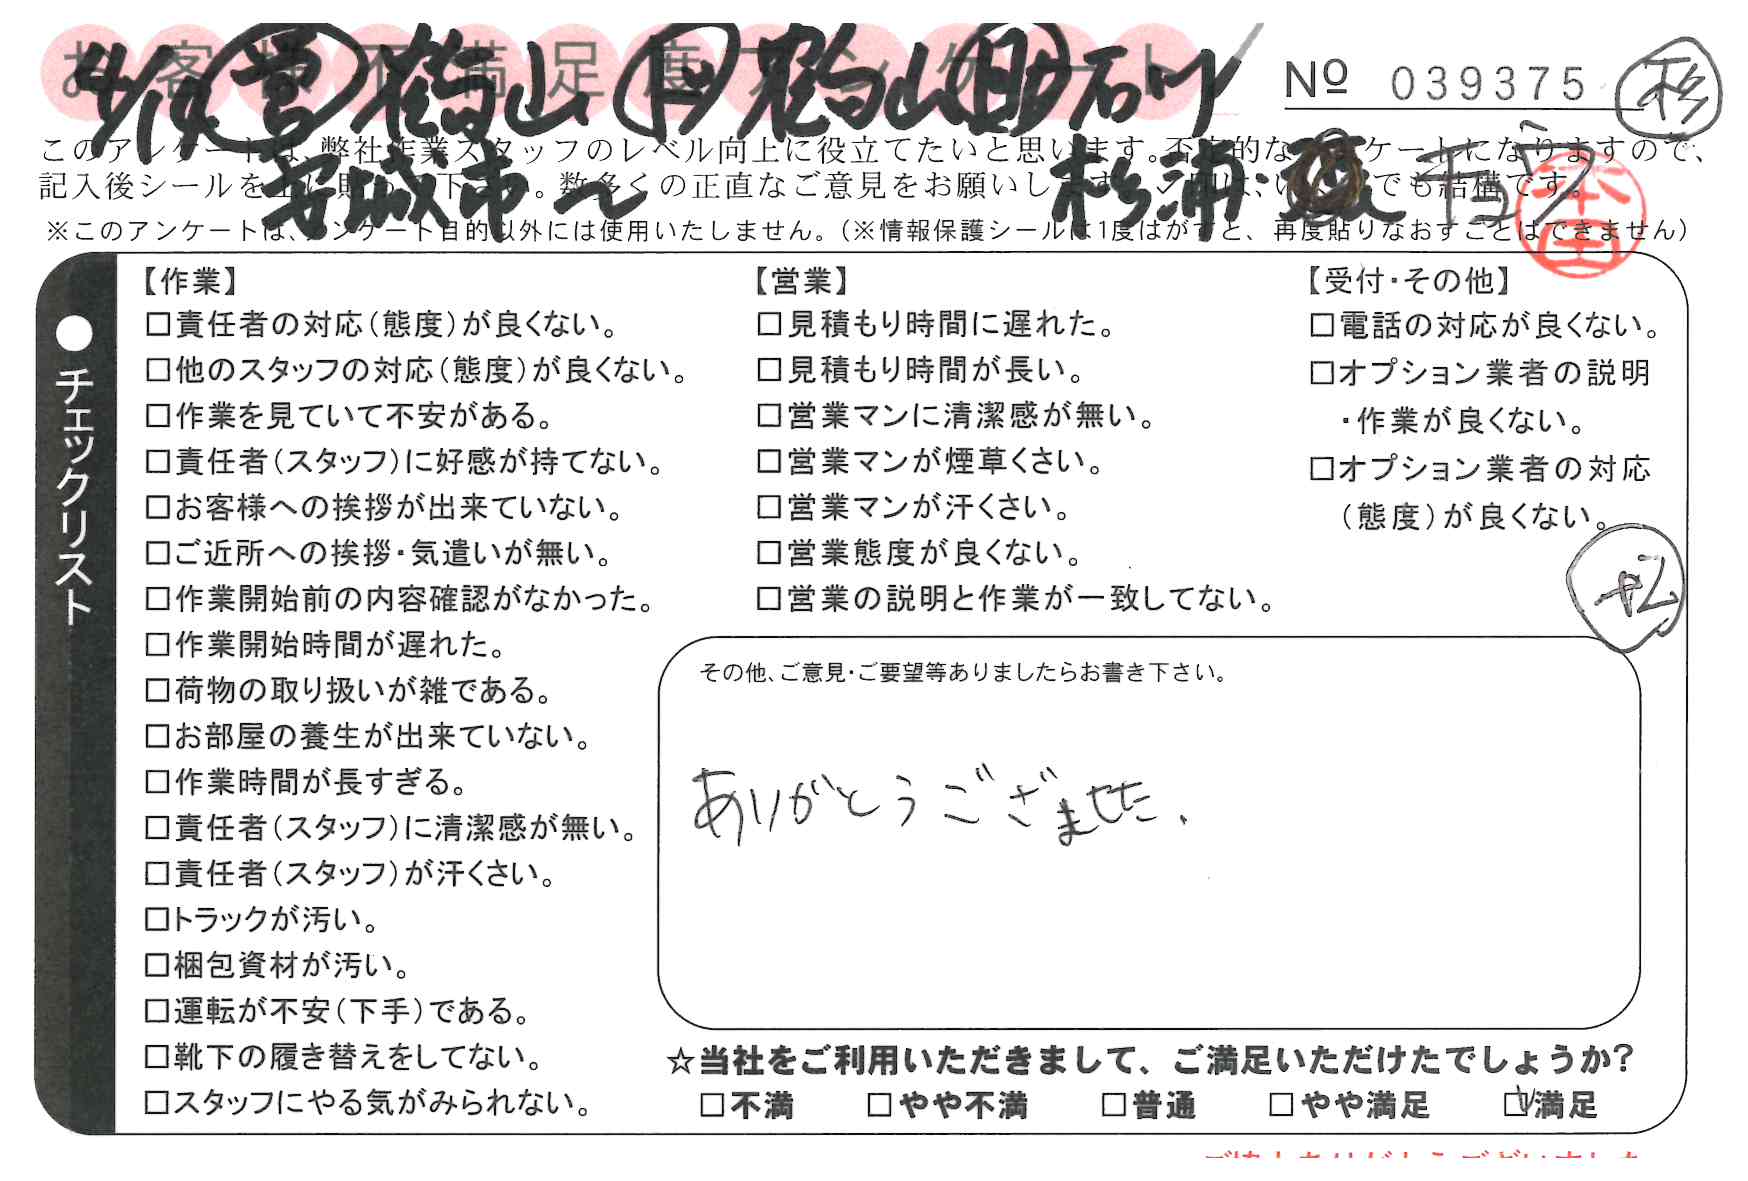 お客様不満足度アンケート
4/18 営 檜山 ド 檜山 助 石川
No 039375 杉
このアンケートは、弊社作業スタッフのレベル向上に役立てたいと思います。否定的なアンケートになりますので、
記入後シールを上に貼って下さい。数多くの正直なご意見をお願いします。
安城市〜 杉浦
本田
※このアンケートは、アンケート目的以外には使用いたしません。(※情報保護シールは1度はがすと、再度貼りなおすことはできません)
●チェックリスト
【作業】
□責任者の対応(態度)が良くない。
□他のスタッフの対応(態度)が良くない。
□作業を見ていて不安がある。
□責任者(スタッフ)に好感が持てない。
□お客様への挨拶が出来ていない。
□ご近所への挨拶・気遣いが無い。
□作業開始前の内容確認がなかった。
□作業開始時間が遅れた。
□荷物の取り扱いが雑である。
□お部屋の養生が出来ていない。
□作業時間が長すぎる。
□責任者(スタッフ)に清潔感が無い。
□責任者(スタッフ)が汗くさい。
□トラックが汚い。
□梱包資材が汚い。
□運転が不安(下手)である。
□靴下の履き替えをしてない。
□スタッフにやる気がみられない。
【営業】
□見積もり時間に遅れた。
□見積もり時間が長い。
□営業マンに清潔感が無い。
□営業マンが煙草くさい。
□営業マンが汗くさい。
□営業態度が良くない。
□営業の説明と作業が一致してない。
【受付・その他】
□電話の対応が良くない。
□オプション業者の説明
・作業が良くない。
□オプション業者の対応
(態度)が良くない。
その他、ご意見・ご要望等ありましたらお書き下さい。
ありがとうござませた.
☆当社をご利用いただきまして、ご満足いただけたでしょうか?
□不満 □やや不満 □普通 □やや満足 ☑満足
ご協力ありがとうございました